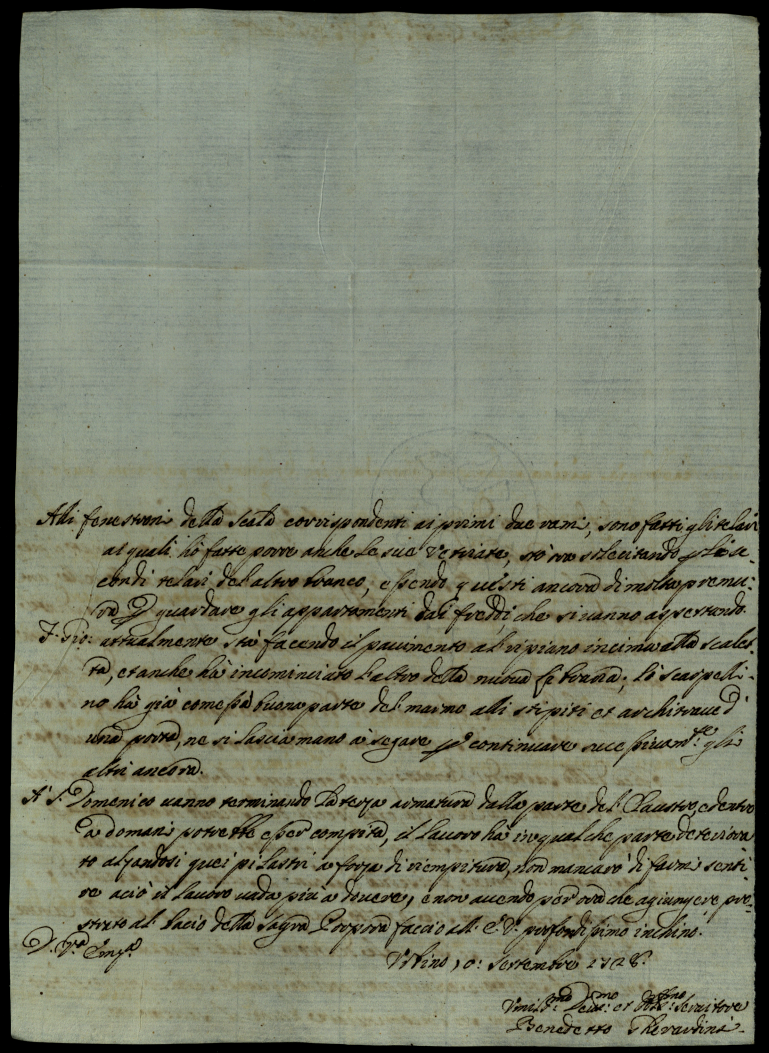 Alli fenestroni della scala corrispondenti ai primi due rami, sono fatti gli telari
ai quali hò fatto porre anche le sue vetriate, stò ora solecitando p li se-
condi telari del altro branco, essendo questi ancora di molta premu-
ra p guardare gli appartamenti dai freddi che si vanno aspettando.
F. Gio: attualmente stà facendo il pavimento al ripiano in cima alla scalet-
ta, et anche hà incominciato l'altro della nuova libraria; lo scarpelli-
no hà già comessa buona parte del marmo alli stipiti et architrave d
una porta, ne si lascia mano à segare p continuare successivam.te gli
altri ancora.
A S. Domenico vanno terminando la terza armatura dalla parte del Claustro, e dentro
à domani potrebbe esser compita, il lavoro hà in qualche parte deteriora
to alzandosi quei pilastri a forza di riempitura, non mancarò di farmi senti
re aciò il lavoro vada più a dovere, e non avendo per ora che agiungere pro-
strato al bacio della Sagra Porpora faccio all' E.V. profondissimo inchino.
D. V.ra Em.za
Urbino, 10: Settembre 1728.
Umiliss.mo Devot.mo et Obb.mo Servitore
Benedetto Gherardini